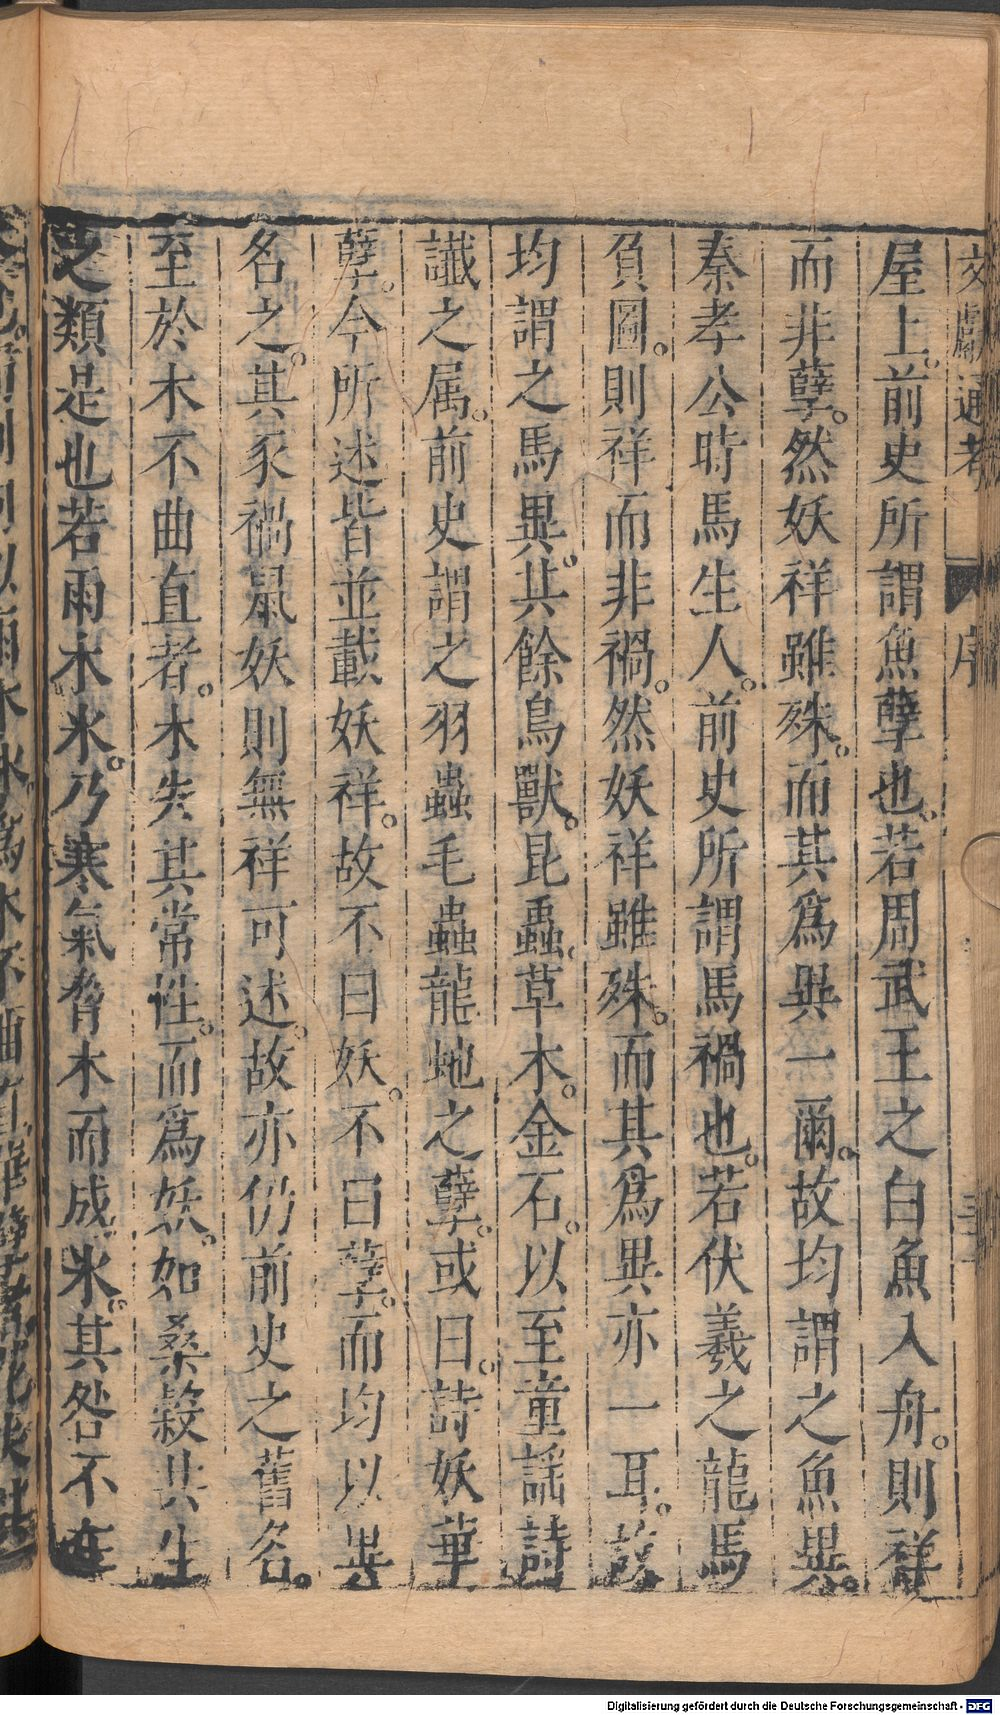 文獻通考 序
屋上。前史所謂魚孽也。若周武王之白魚入舟。則祥
而非孽。然妖祥雖殊。而其爲異一爾。故均謂之魚異。
秦孝公時馬生人。前史所謂馬禍也。若伏羲之龍馬
負圖。則祥而非禍。然妖祥雖殊。而其爲異亦一耳。故
均謂之馬異。其餘鳥獸。昆蟲。草木。金石。以至童謡詩
讖之属。前史謂之羽蟲毛蟲龍蛇之孽。或曰。詩妖華
孽。今所述皆並載妖祥。故不曰妖。不曰孽。而均以異
名之。其豕禍鼠妖則無祥可述。故亦仍前史之舊名。
至於木不曲直者。木失其常性。而爲妖。如桑榖共生
之類是也若雨木冰。乃寒氣脅木而成冰。其咎不在
Digitalisierung gefördert durch die Deutsche Forschungsgemeinschaft - DFG